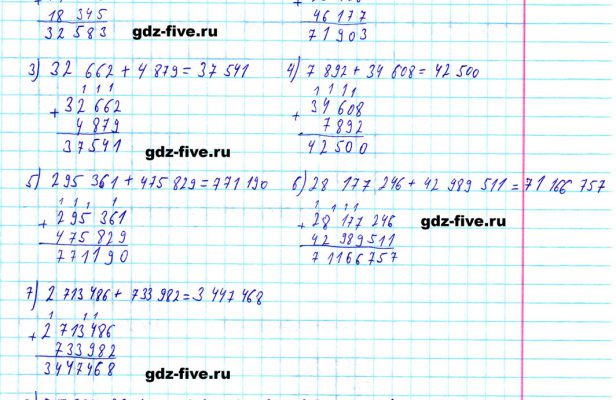 18 345
46 177
32 583
71903
gdz-five.ru
3) 32 662 + 4 879 = 37 541
4) 7 892 + 34 608 = 42 500
1 1 1
1 1 1 1
+ 32 662
+ 34 608
4 879
7 892
37541
42500
gdz-five.ru
5) 295 361 + 475 829 = 771 190
6) 28 177 246 + 42 989 511 = 71 166 757
1 1 1 1
1 1 1 1
+ 295 361
+ 28 177 246
gdz-five.ru
475 829
42 989 511
771190
71166757
7) 2 713 486 + 733 982 = 3 447 468
1 1 1
+ 2 713 486
733 982
3447468
gdz-five.ru